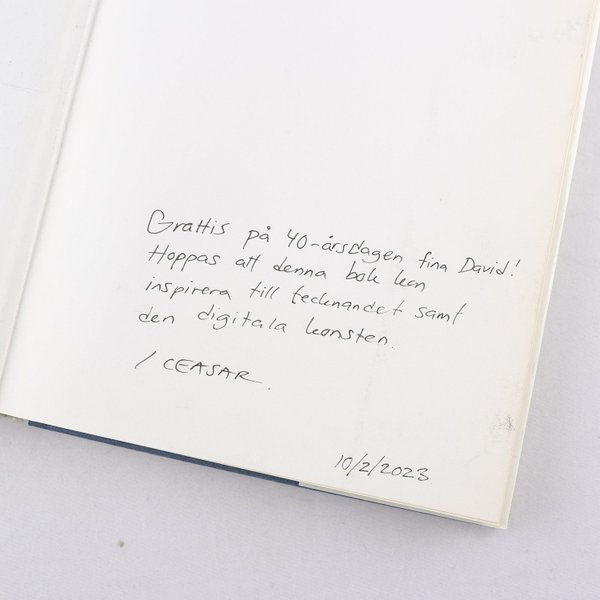 Grattis på 40-årsdagen fina David!
Hoppas att denna bok kan
inspirera till tecknandet samt
den digitala konsten.
/ CEASAR.
10/2/2023